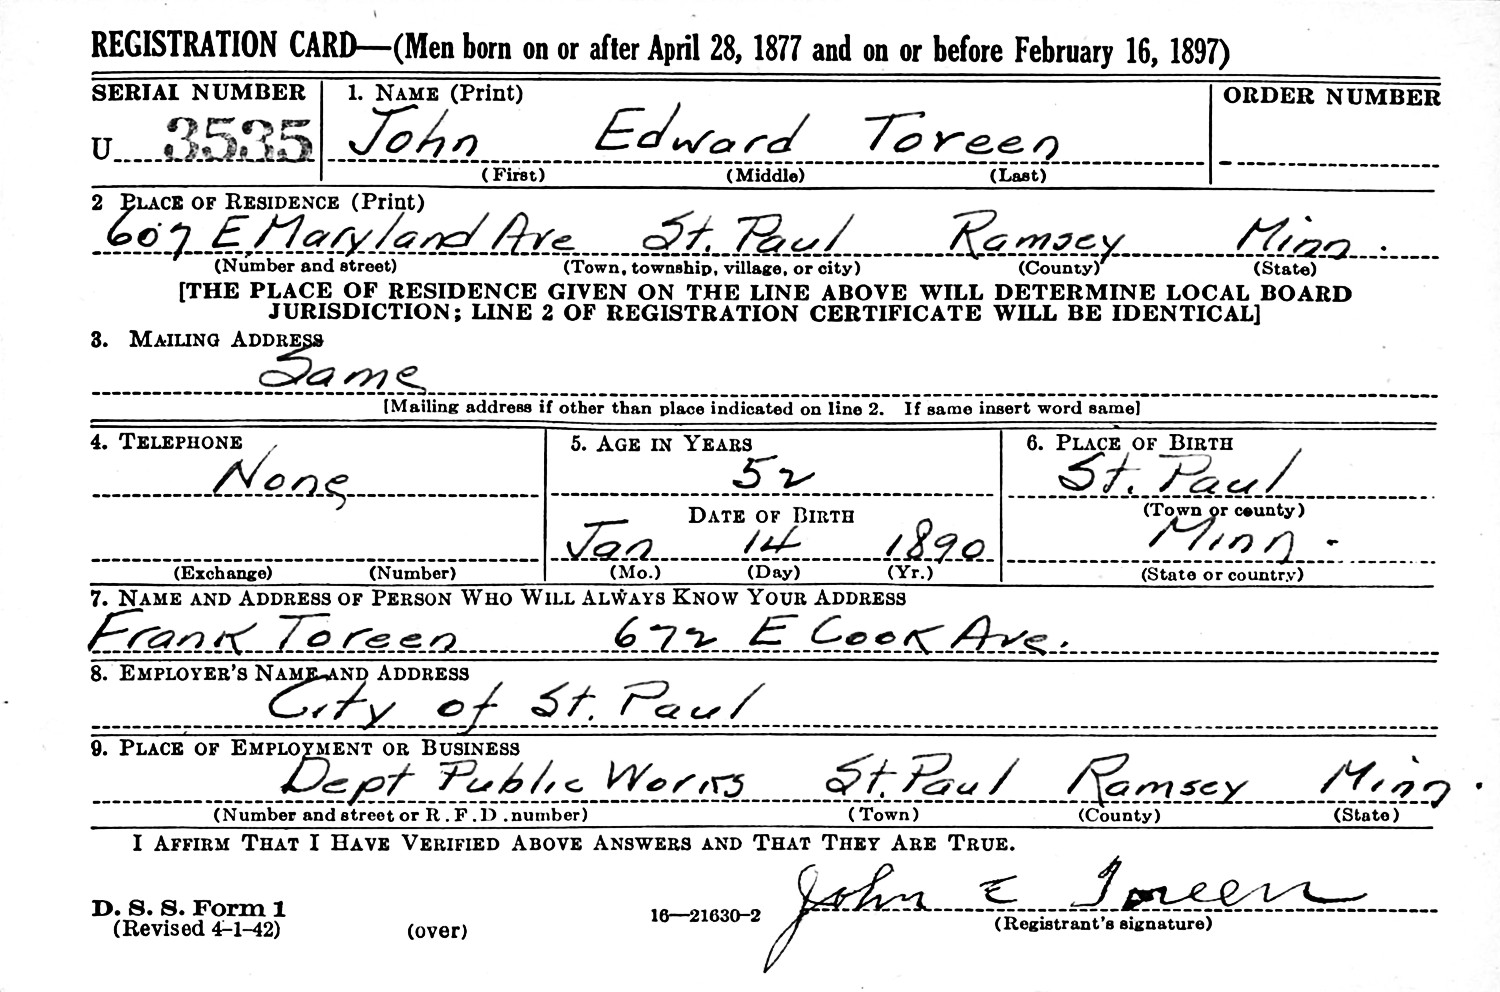 REGISTRATION CARD—(Men born on or after April 28, 1877 and on or before February 16, 1897)
SERIAL NUMBER 1. NAME (Print) ORDER NUMBER
U 3535 John Edward Toreen
(First) (Middle) (Last)
2 PLACE OF RESIDENCE (Print)
607 E Maryland Ave St. Paul Ramsey Minn.
(Number and street) (Town, township, village, or city) (County) (State)
[THE PLACE OF RESIDENCE GIVEN ON THE LINE ABOVE WILL DETERMINE LOCAL BOARD
JURISDICTION; LINE 2 OF REGISTRATION CERTIFICATE WILL BE IDENTICAL]
3. MAILING ADDRESS
Same
[Mailing address if other than place indicated on line 2. If same insert word same]
4. TELEPHONE 5. AGE IN YEARS 6. PLACE OF BIRTH
None 52 St. Paul
DATE OF BIRTH (Town or county)
Jan 14 1890 Minn.
(Exchange) (Number) (Mo.) (Day) (Yr.) (State or country)
7. NAME AND ADDRESS OF PERSON WHO WILL ALWAYS KNOW YOUR ADDRESS
Frank Toreen 672 E Cook Ave.
8. EMPLOYER'S NAME AND ADDRESS
City of St. Paul
9. PLACE OF EMPLOYMENT OR BUSINESS
Dept Public Works St. Paul Ramsey Minn.
(Number and street or R.F.D. number) (Town) (County) (State)
I AFFIRM THAT I HAVE VERIFIED ABOVE ANSWERS AND THAT THEY ARE TRUE.
John E Toreen
D. S. S. Form 1
(Revised 4-1-42) (over) 16—21630-2 (Registrant's signature)